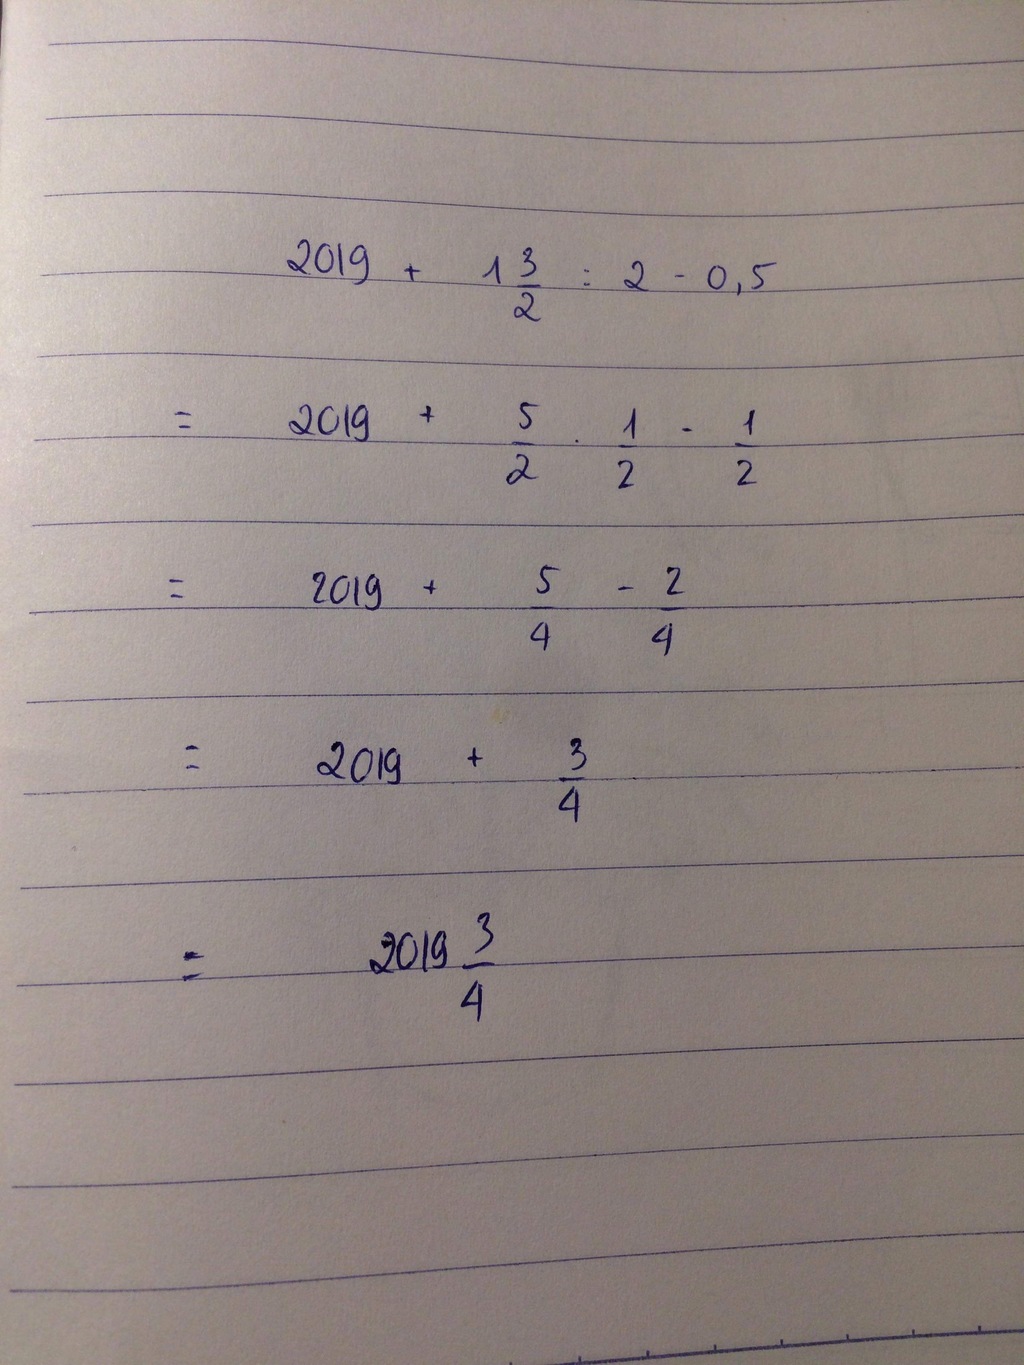 2019 + 1 3/2 : 2 - 0,5
= 2019 + 5/2 . 1/2 - 1/2
= 2019 + 5/4 - 2/4
= 2019 + 3/4
= 2019 3/4